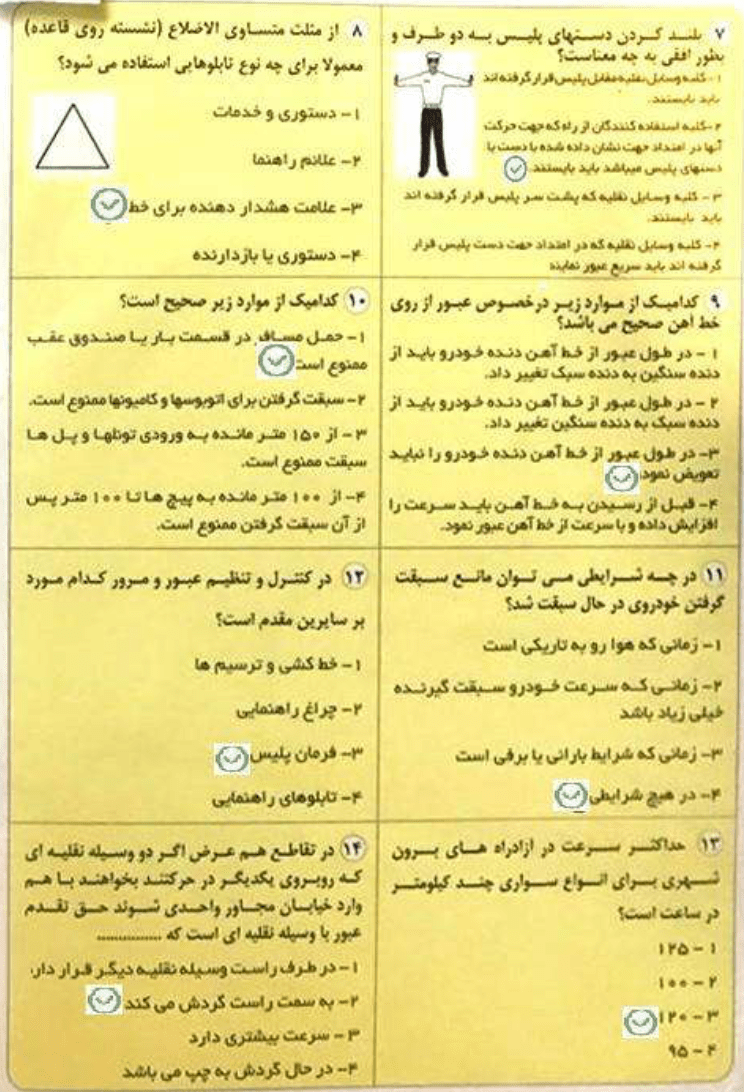 ۷ بلند کردن دستهای پلیس به دو طرف و
بطور افقی به چه معناست؟
۱- کلیه وسایل نقلیه مقابل پلیس قرار گرفته اند
باید بایستند.
۲- کلیه استفاده کنندگان از راه که جهت حرکت
آنها در امتداد جهت نشان داده شده با دست یا
دستهای پلیس میباشد باید بایستند.
۳- کلیه وسایل نقلیه که پشت سر پلیس قرار گرفته اند
باید بایستند.
۴- کلیه وسایل نقلیه که در امتداد جهت دست پلیس قرار
گرفته اند باید سریع عبور نمایند
۸ از مثلث متساوی الاضلاع (نشسته روی قاعده)
معمولا برای چه نوع تابلوهایی استفاده می شود؟
۱- دستوری و خدمات
۲- علائم راهنما
۳- علامت هشدار دهنده برای خط
۴- دستوری یا بازدارنده
۹ کدامیک از موارد زیر درخصوص عبور از روی
خط آهن صحیح می باشد؟
۱ - در طول عبور از خط آهن دنده خودرو باید از
دنده سنگین به دنده سبک تغییر داد.
۲ - در طول عبور از خط آهن دنده خودرو باید از
دنده سبک به دنده سنگین تغییر داد.
۳- در طول عبور از خط آهن دنده خودرو را نباید
تعویض نمود
۴- قبل از رسیدن به خط آهن باید سرعت را
افزایش داده و با سرعت از خط آهن عبور نمود.
۱۰ کدامیک از موارد زیر صحیح است؟
۱- حمل مسافر در قسمت بار یا صندوق عقب
ممنوع است
۲- سبقت گرفتن برای اتوبوسها و کامیونها ممنوع است.
۳- از ۱۵۰ متر مانده به ورودی تونلها و پل ها
سبقت ممنوع است.
۴- از ۱۰۰ متر مانده به پیچ ها تا ۱۰۰ متر پس
از آن سبقت گرفتن ممنوع است.
۱۱ در چه شرایطی می توان مانع سبقت
گرفتن خودروی در حال سبقت شد؟
۱- زمانی که هوا رو به تاریکی است
۲- زمانی که سرعت خودرو سبقت گیرنده
خیلی زیاد باشد
۳- زمانی که شرایط بارانی یا برفی است
۴- در هیچ شرایطی
۱۲ در کنترل و تنظیم عبور و مرور کدام مورد
بر سایرین مقدم است؟
۱- خط کشی و ترسیم ها
۲- چراغ راهنمایی
۳- فرمان پلیس
۴- تابلوهای راهنمایی
۱۳ حداکثر سرعت در آزادراه های برون
شهری برای انواع سواری چند کیلومتر
در ساعت است؟
۱ - ۱۲۵
۲ - ۱۰۰
۳ - ۱۲۰
۴ - ۹۵
۱۴ در تقاطع هم عرض اگر دو وسیله نقلیه ای
که روبروی یکدیگر در حرکتند بخواهند با هم
وارد خیابان مجاور واحدی شوند حق تقدم
عبور با وسیله نقلیه ای است که ...............
۱- در طرف راست وسیله نقلیه دیگر قرار دارد.
۲- به سمت راست گردش می کند
۳- سرعت بیشتری دارد
۴- در حال گردش به چپ می باشد